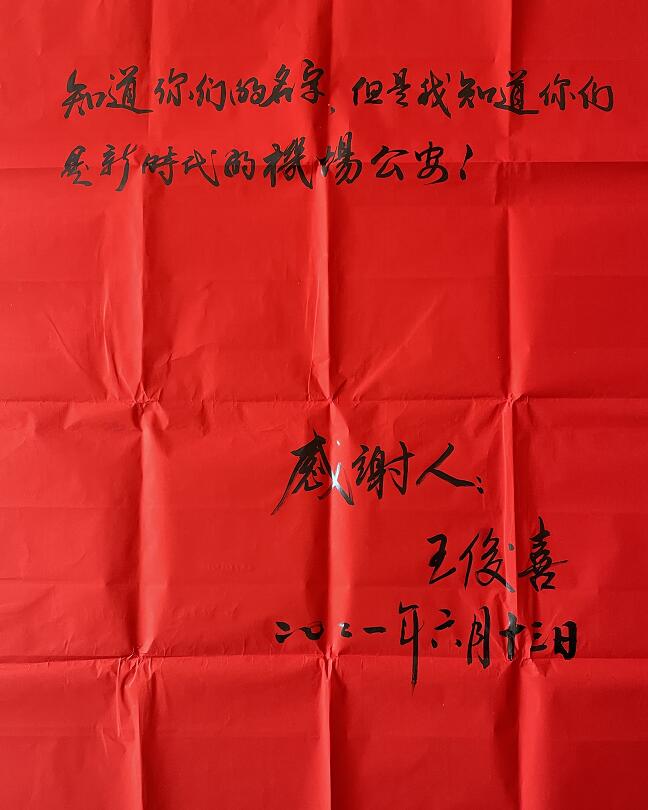 知道你们的名字，但是我知道你们
是新時代的機場公安！
感謝人：
王俊喜
二〇二一年六月十三日